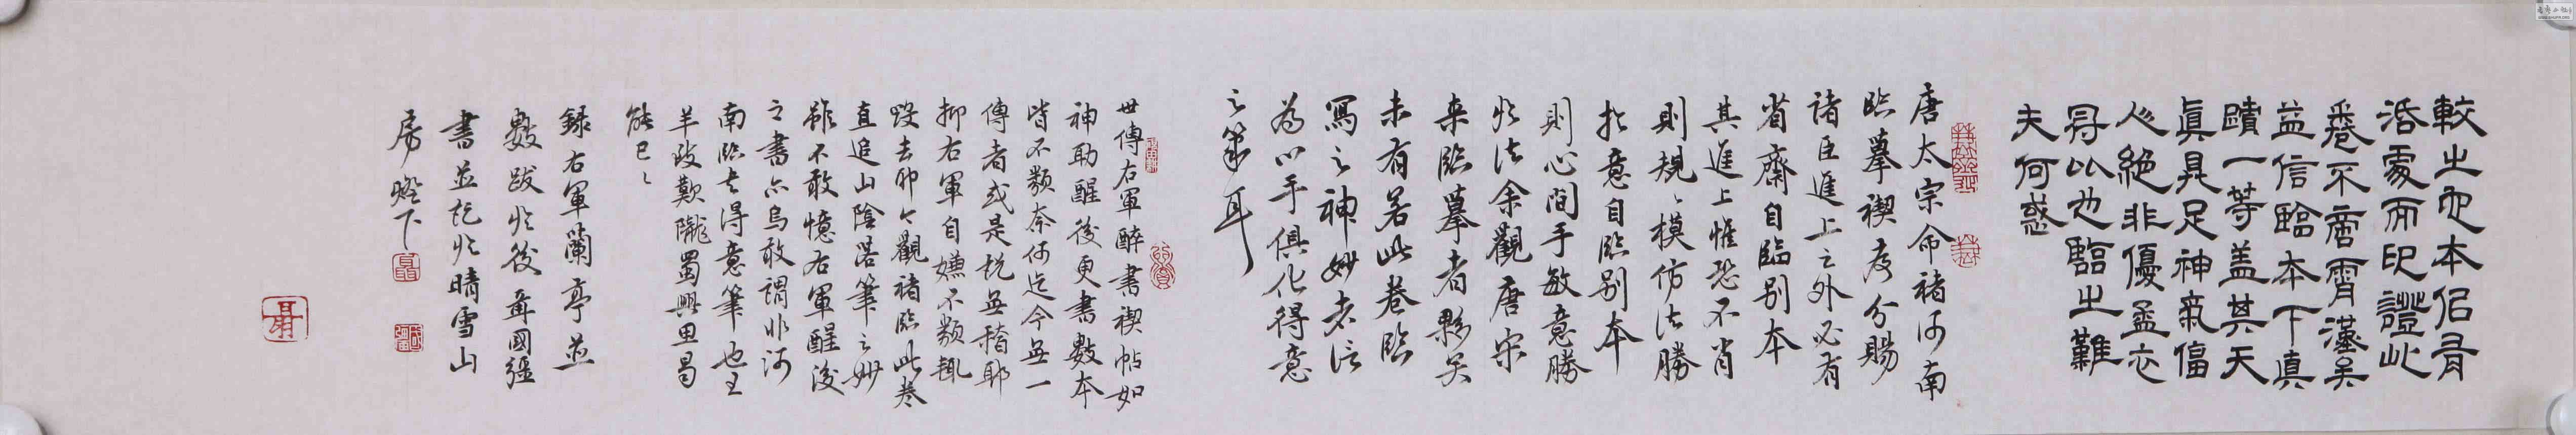 較之而本侶肎
浯處而印證此
卷不啻霄漢矣
益信臨本下真
蹟一等盖其天
真具足神氣偪
人絕非優孟衣
冠比也臨之難
夫何惑
唐太宗命褚河南
臨摹禊序分賜
諸臣進上之外必有
省齋自臨别本
其進上惟恐不肖
則規規模仿法勝
於意自臨别本
則心閒手敏意勝
於法余觀唐宋
来臨摹者夥矣
未有若此卷臨
寫之神妙者信
為心手俱化得意
之筆耳
世傳右軍醉書禊帖如
神助醒後更書數本
皆不類奈何迄今無一
傳者或是説無稽耶
抑右軍自嫌不類輒
毀去耶今觀褚臨此卷
直追山陰落筆之妙
雖不敢憶右軍醒後
之書亦烏敢謂非河
南臨古得意筆也王
羊致歎隴蜀興思曷
能已已
録右軍蘭亭並
數跋於後聶國彊
書並記於晴雪山
房燈下